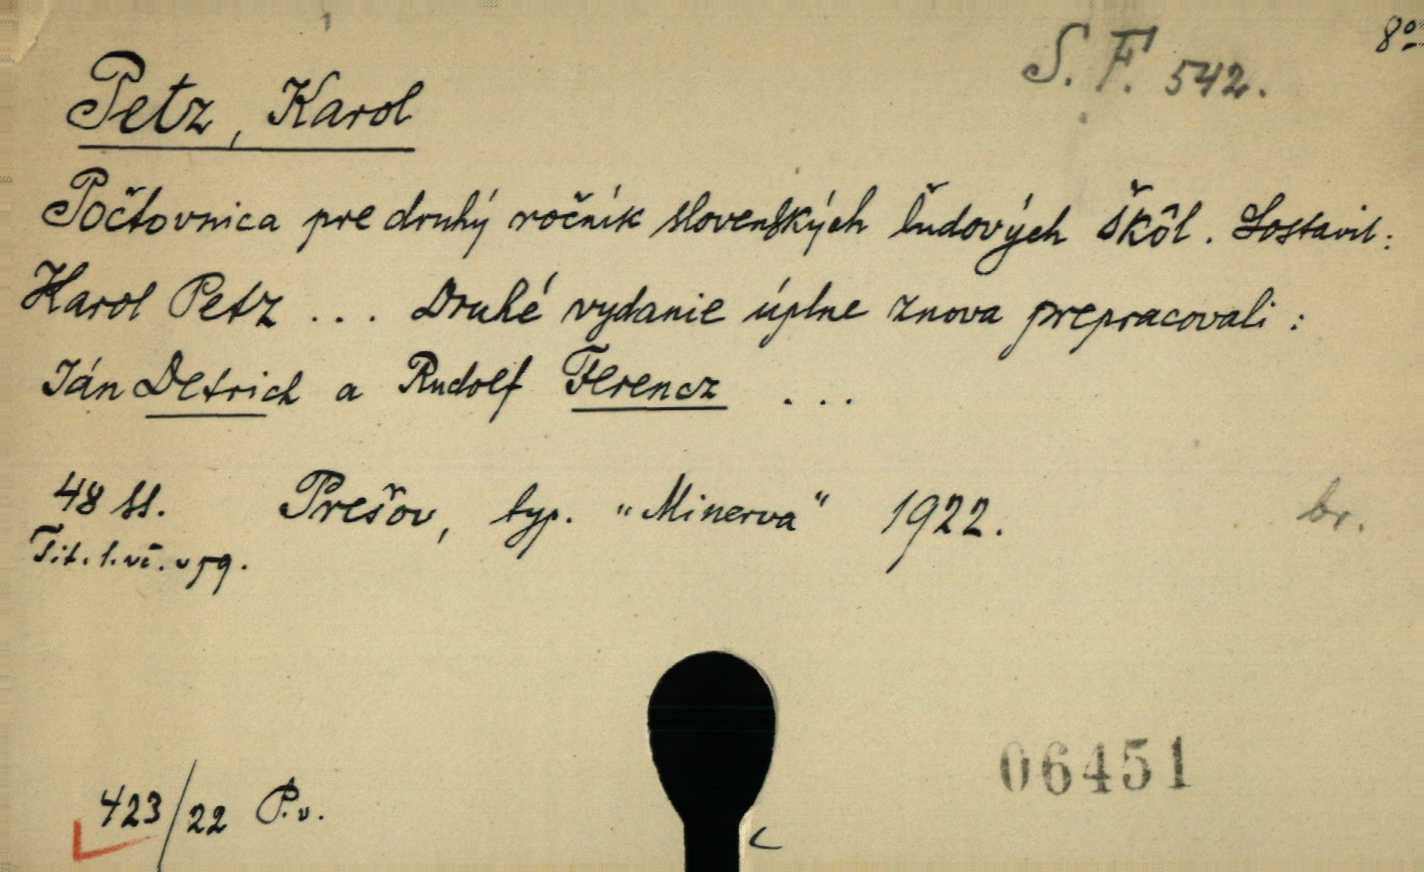 S. F. 542. 8°
Petz, Karol
Počtovnica pre druhý ročník slovenských ľudových škôl. Sostavil:
Karol Petz ... Druhé vydanie úplne znova prepracovali:
Ján Detrich a Rudolf Ferencz ...
48 ss. Prešov, typ. "Minerva" 1922. br.
Tit. l. vč. v pg.
06451
423/22 P.v.